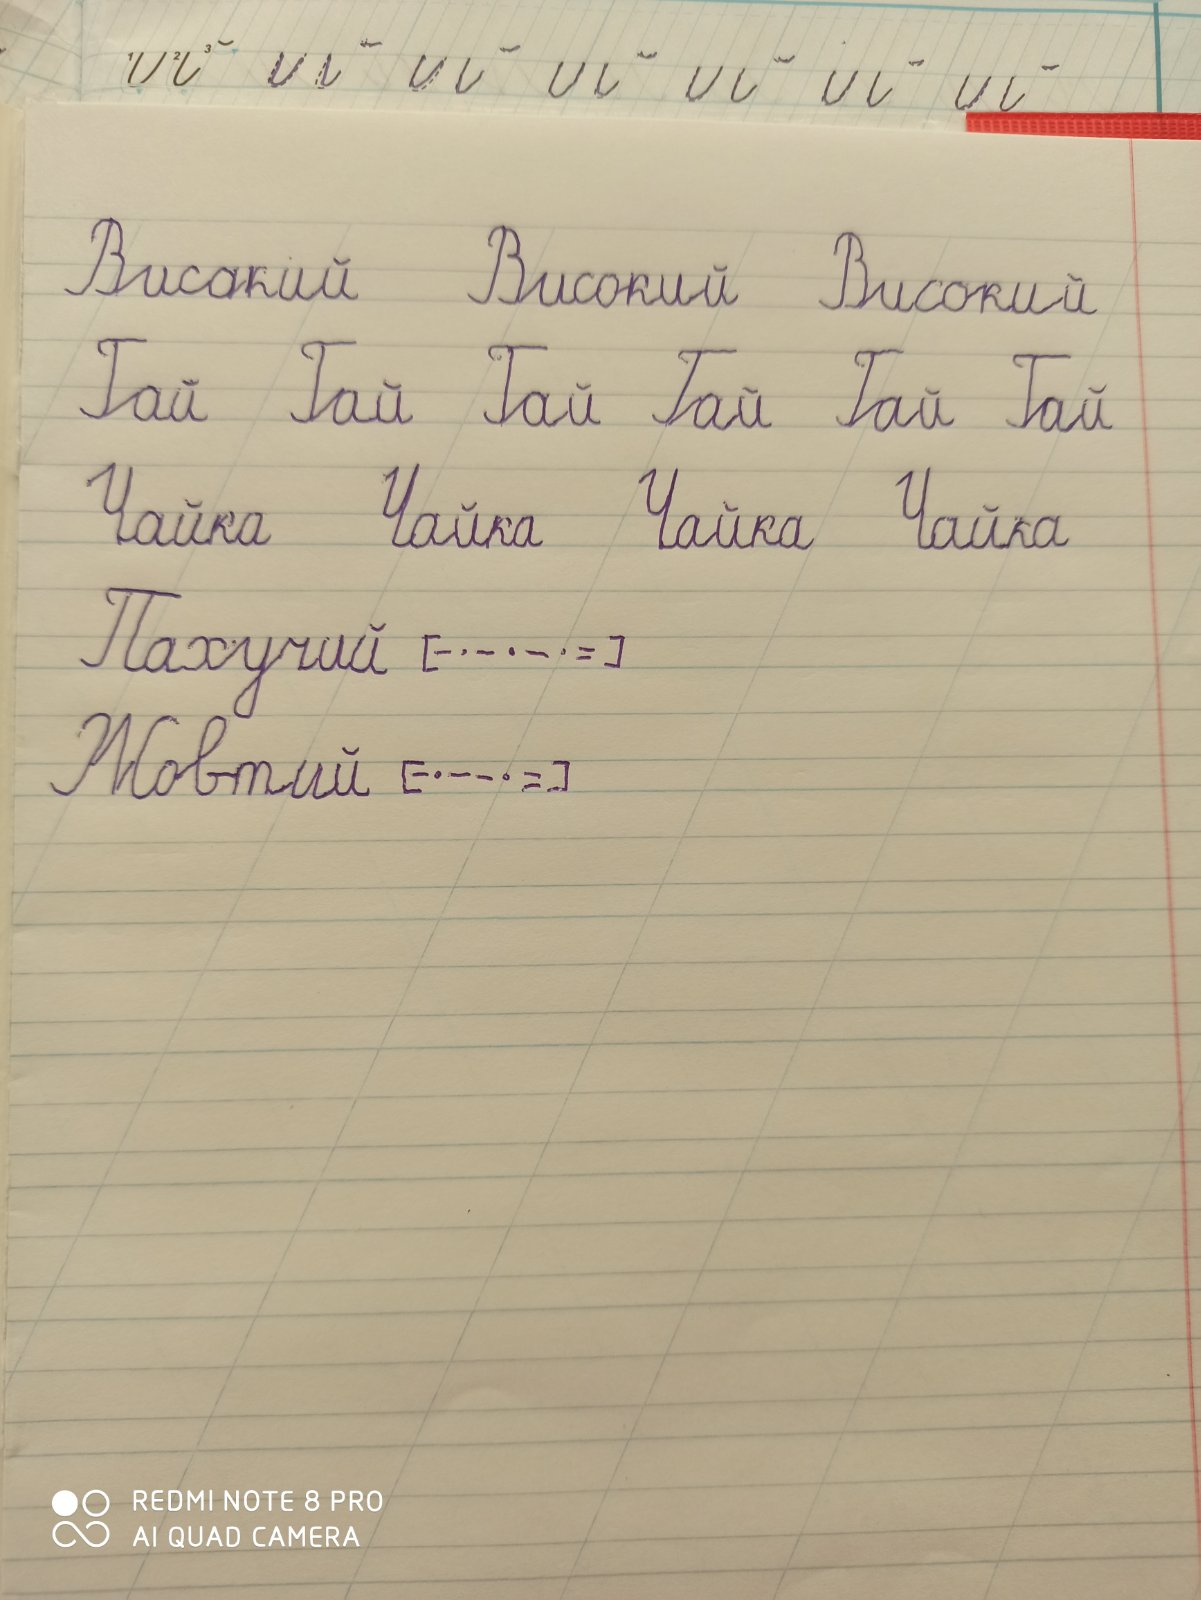 Високий Високий Високий
Гай Гай Гай Гай Гай Гай
Чайка Чайка Чайка Чайка
Пахучий [–·–·–·=]
Жовтий [–·––·=]
REDMI NOTE 8 PRO
AI QUAD CAMERA